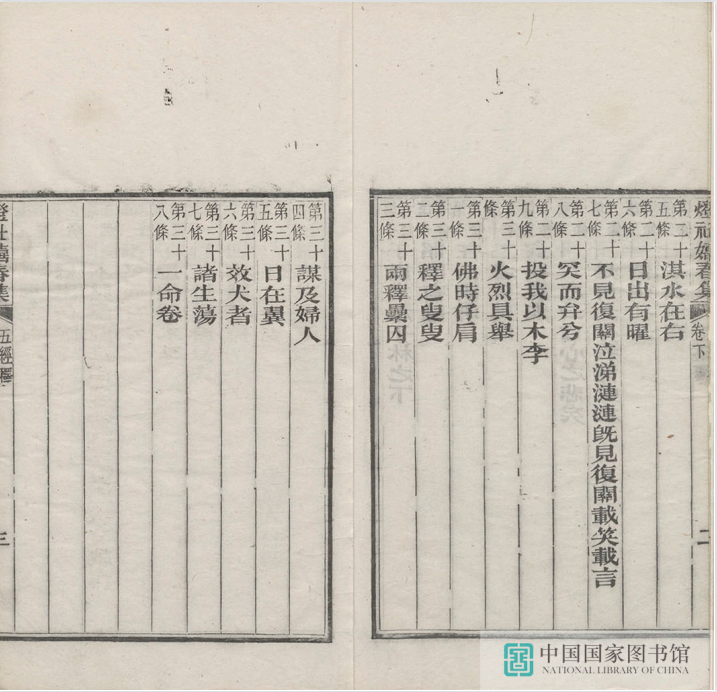 燈社嬉春集 卷下 二
第二十五條 淇水在右
第二十六條 日出有曜
第二十七條 不見復關泣涕漣漣旣見復關載笑載言
第二十八條 突而弁兮
第二十九條 投我以木李
第三十條 火烈具舉
第三十一條 佛時仔肩
第三十二條 釋之叟叟
第三十三條 兩釋纍囚
第三十四條 謀及婦人
第三十五條 日在翼
第三十六條 效犬者
第三十七條 諸生蕩
第三十八條 一命卷
燈社嬉春集 五經 三
中国国家图书馆
NATIONAL LIBRARY OF CHINA